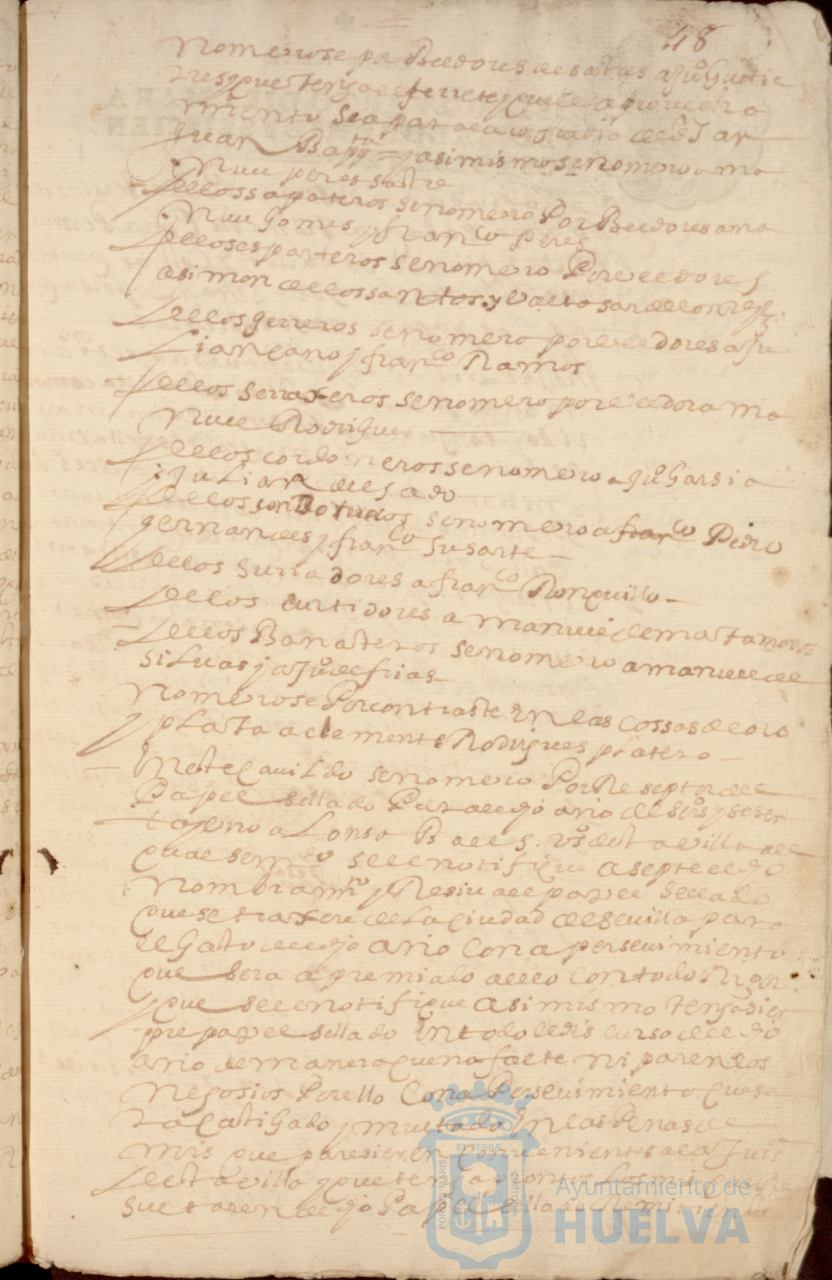 48
nomerose por Beedores de sastres a Juº Gutie
rres que tenga el ferrete y que el aprovecha
miento sea para la cofradia de Sª
Juan Bapᵗᵃ = y asimismo se nomero a ma
nuel peres sastre
de los sapateros se nomero Por Beedores a ma
nuel Gomes y franᶜᵒ Peres
de los esparteros se nomero Por veedores
a simon de los santos y Baltosar de los Reies
de los herreros se nomero por veedores a Ju
Liansano y franᶜᵒ Ramos
de los serraxeros se nomero por veedor a ma
nuel Rodrigues
de los cordoneros se nomero a Juº Garsia
y Julian de
de los se nomero a franᶜᵒ Pedro
hernandes y franᶜᵒ Susarte
de los Surradores a franᶜᵒ Ronquillo
de los curtidores a manuel de matamoros
de los Banasteros se nomero a manuel de
silvas y a Juº de frias
nomerose Por contraste En las cossas de oro
y plasta a clemente Rodrigues platero
En este Cavildo se nomero Por Reseptor del
Papel sellado Para el dho año de seisº y sesen
ta y uno a Lonso Baes vº desta villa el
qual sele notifique asepte el dho
nombramᵗᵒ y Resiva el papel sellado
que se traxere de La Ciudad de Sevilla para
el Gasto del dho año con apersevimiento
que sera apremiado a ello con todo Rigor
y que se le notifique asimismo tenga siem
pre papel sellado En todo el discurso del dho
año de manera que no falte ni paren los
negosios Por ello Con Persevimiento que se
ra Castigado y multado En las Penas de
mrs que paresieren Convenientes a la Justª
de esta villa y que tenga
del dho Papel sellado Remitiendo
Ayuntamiento de
HUELVA
PORTUS MARIS
ET TERRAE
CUSTODIA